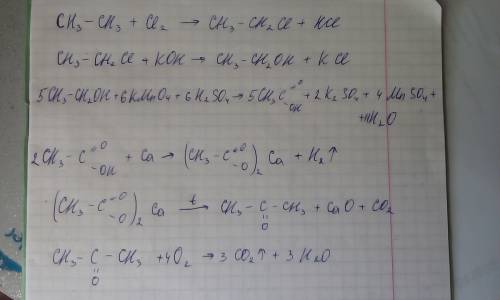 CH₃–CH₃ + Cl₂ → CH₃–CH₂Cl + HCl
CH₃–CH₂Cl + KOH → CH₃–CH₂OH + KCl
5CH₃–CH₂OH + 6KMnO₄ + 6H₂SO₄ → 5CH₃C=O–OH + 2K₂SO₄ + 4MnSO₄ +
+11H₂O
2CH₃–C=O–OH + Ca → (CH₃–C=O–O)₂Ca + H₂↑
(CH₃–C=O–O)₂Ca –t→ CH₃–C(=O)–CH₃ + CaO + CO₂
CH₃–C(=O)–CH₃ + 4O₂ → 3CO₂↑ + 3H₂O